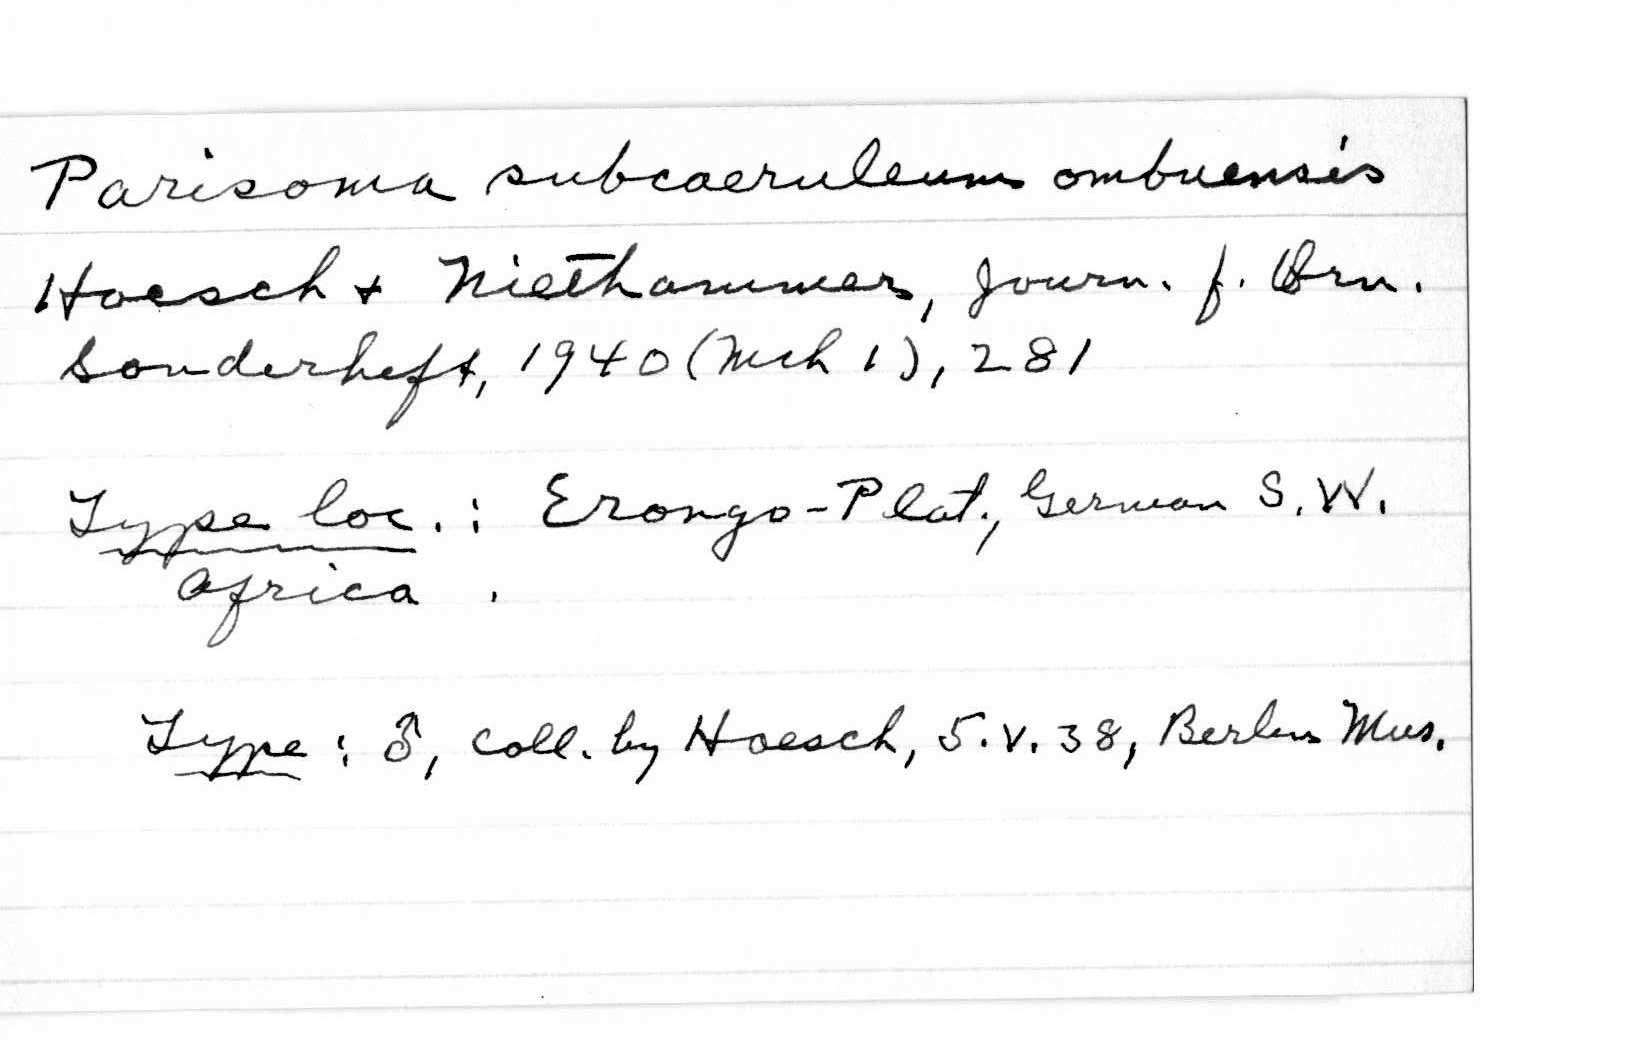 Parisoma subcaeruleum ombuensis
Hoesch + Niethammer, Journ. f. Orn.
Sonderheft, 1940 (Mch 1), 281
Type loc. : Erongo-Plat., German S. W.
Africa .
Type : ♂, coll. by Hoesch, 5. V. 38, Berlin Mus.